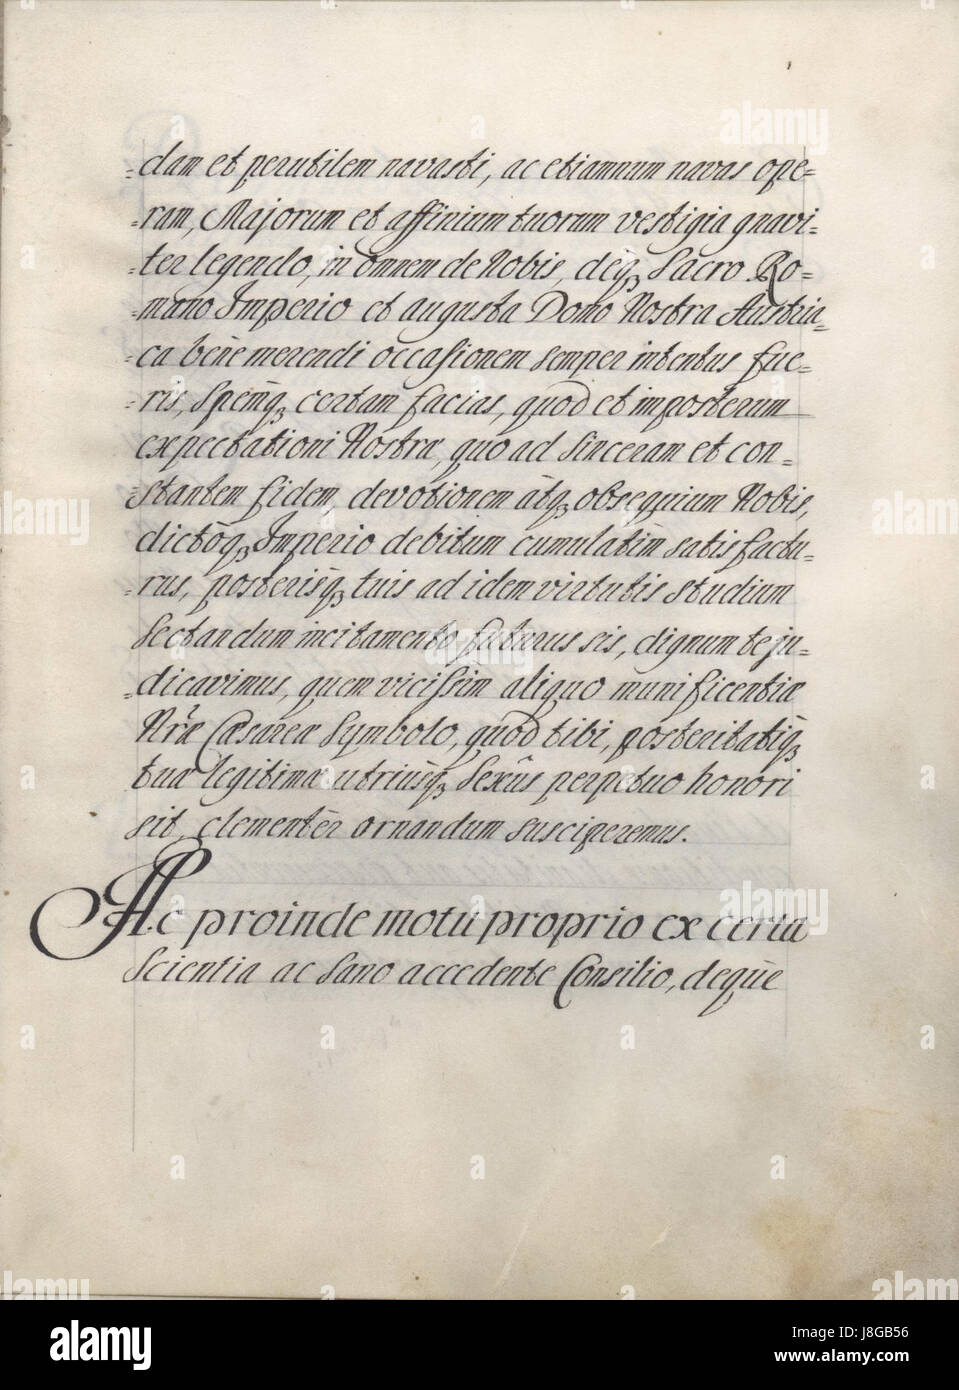 =dam et perutilem navasti, ac etiamnum navas ope=
=ram, Majorum et affinium tuorum vestigia gnavi=
=ter legendo, in omnem de Nobis, déq; Sacro Ro=
=mano Imperio et augusta Domo Nostra Austria=
=ca benè merendi occasionem semper intentus fue=
=ris, Spemq; certam facias, quod et imposterum
expectationi Nostræ, quo ad Sinceram et con=
=stantem fidem, devotionem àtq; obsequium Nobis,
dictóq; Imperio debitum cumulatìm satisfactu=
=rus, posterisq; tuis ad idem virtutis studium
Sectandum incitamento futurus sis, dignum te ju=
=dicavimus, quem vicissim aliquo munificentiæ
Nr̃æ Cæsareæ Symbolo, quod tibi, posteritatiq;
tuæ legitimæ utriusq; Sexûs perpetuo honori
sit, clementèr ornandum susciperemus.
Ac proinde motu proprio ex certa
Scientia ac Sano accedente Consilio, deque
alamy
a
alamy
Image ID: J8GB56
www.alamy.com